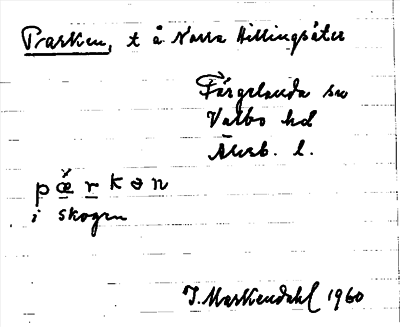 Parken, t å Norra Hillingsäter
Färgelanda sn
Valbo hd
Älvsb. l.
pærkən
i skogen
J. Markendahl 1960